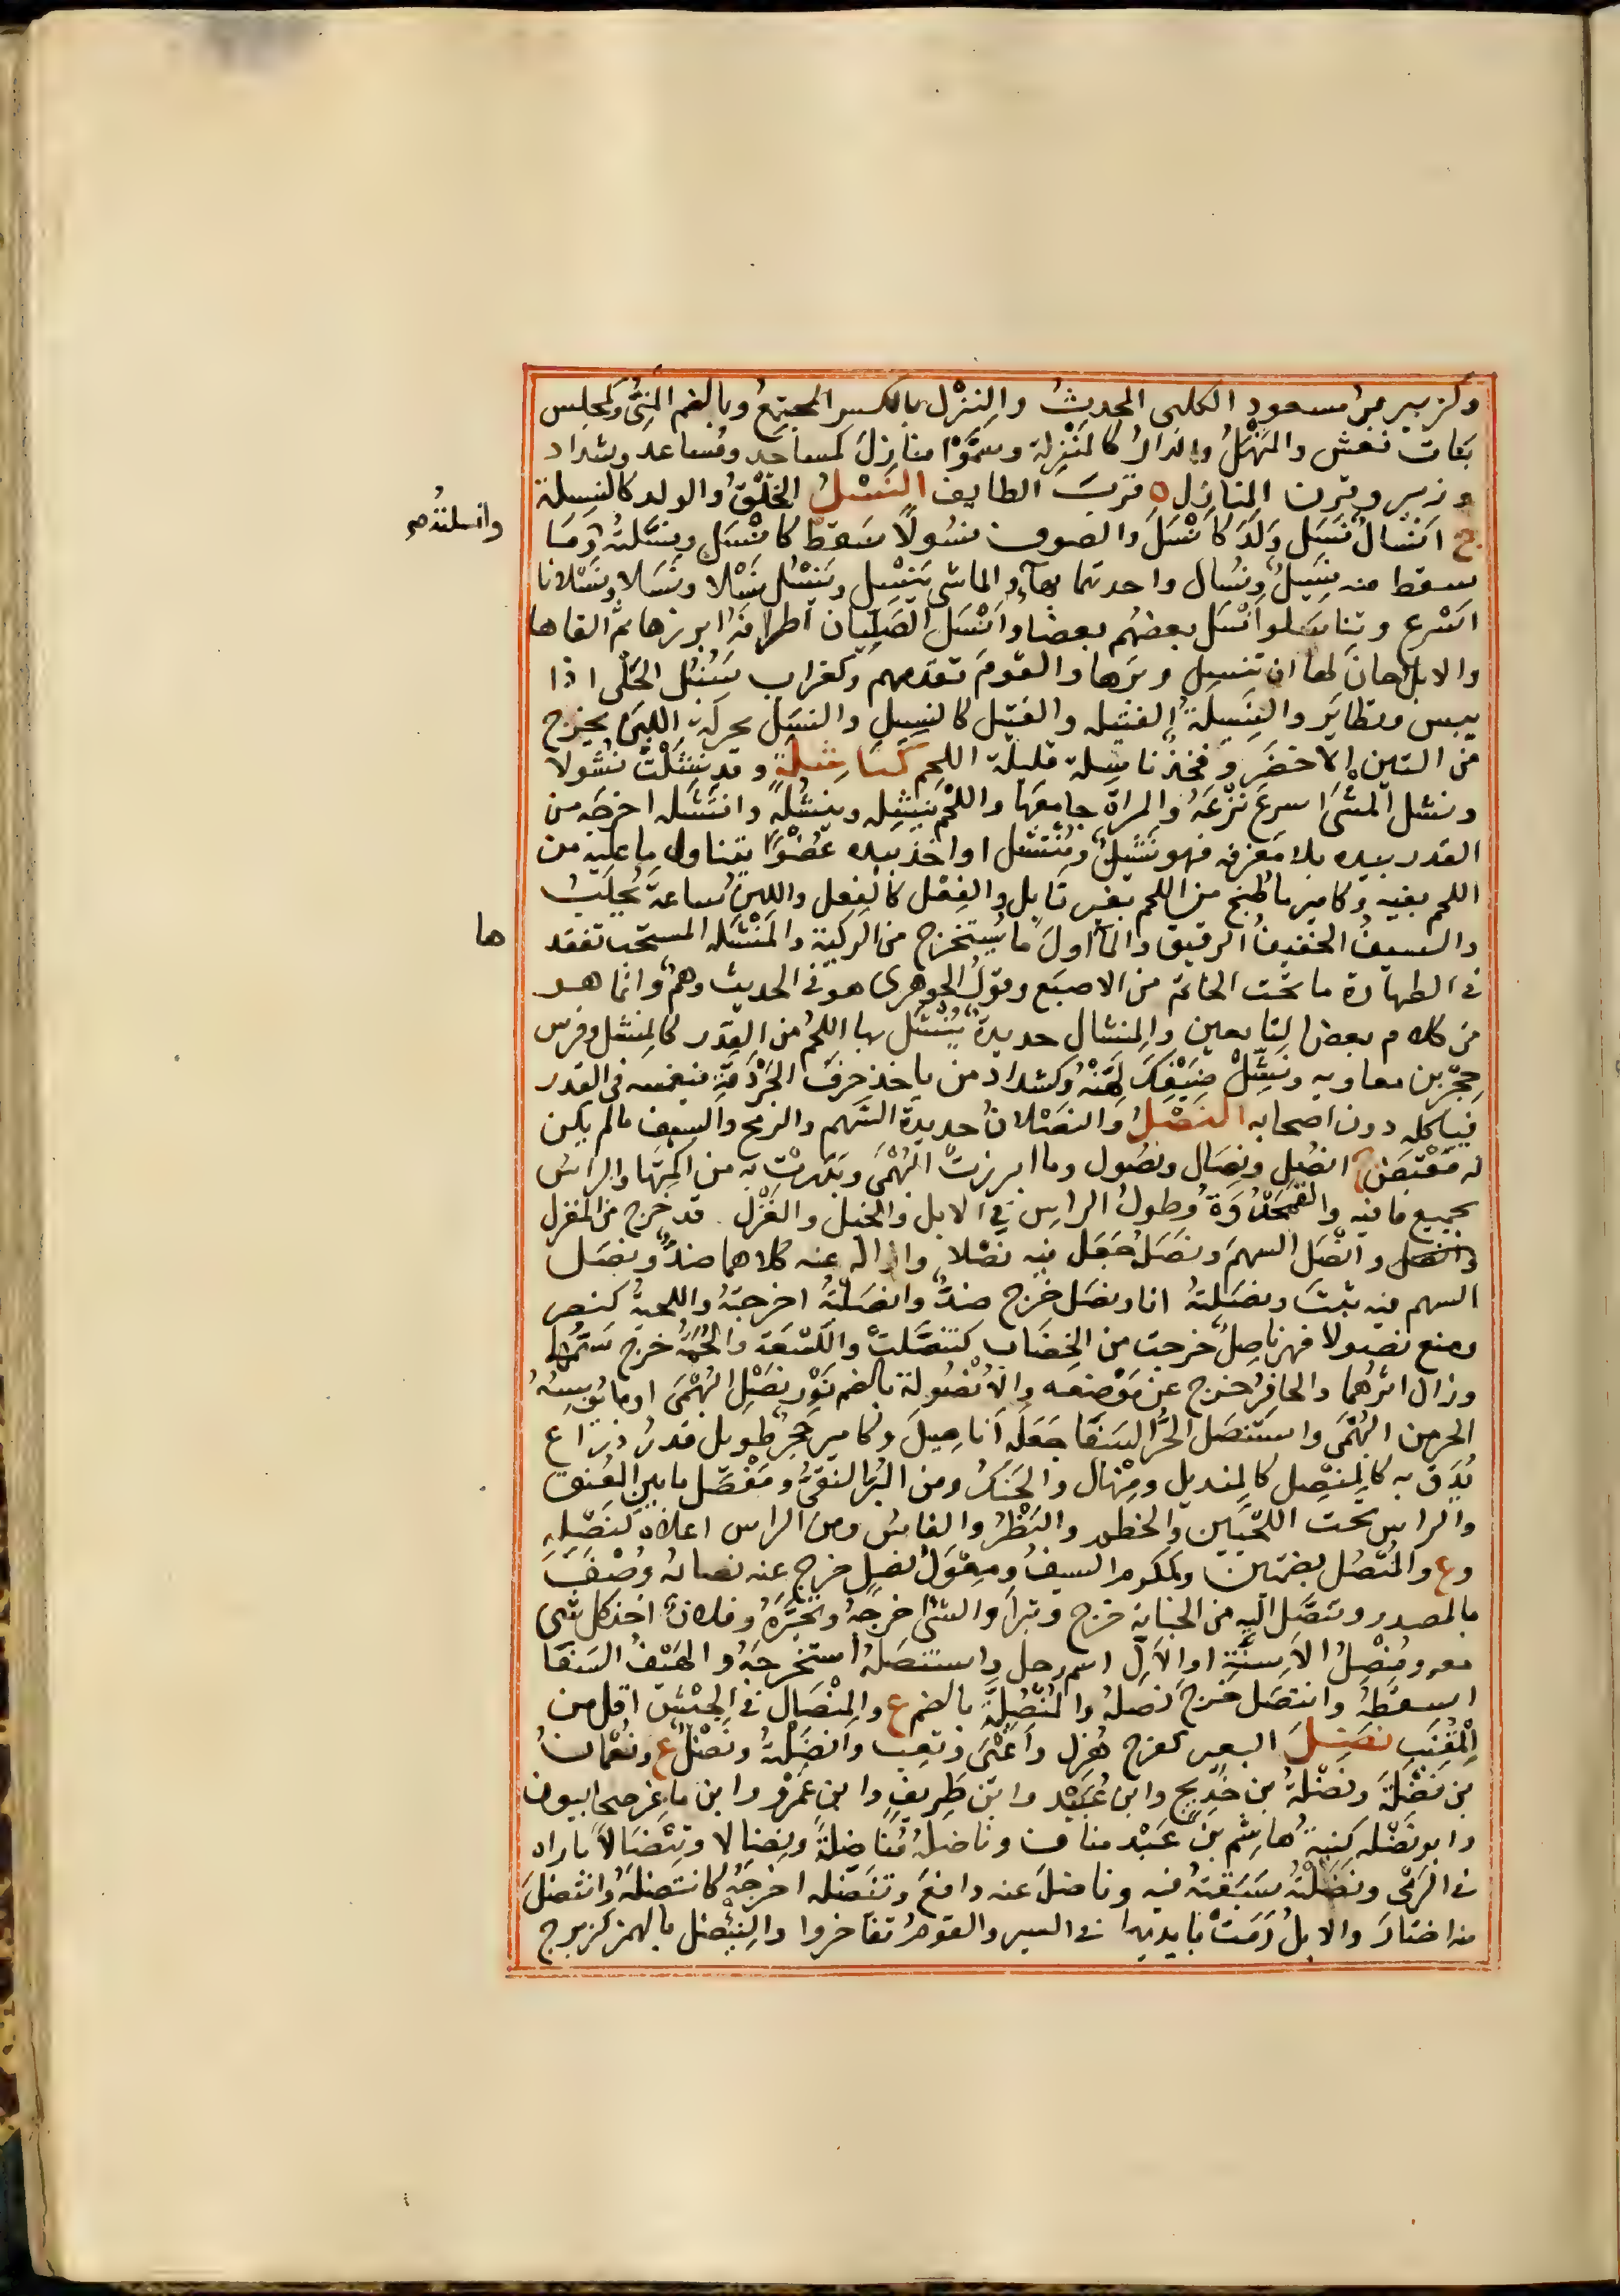 وكزبير بن مسعود الكلبى المحدث والنزل بالكسر المجتمع وبالضم المنى وكمجلس
بنات نعش والمنهل والدار كالمنزلة وسموا منازل كمساجد ومساعد وشداد
وزبير وقرن المنازل ة قرب الطايف النسل الخلق والولد كالنسيلة
ج انسال نسل ولد كانسل والصوف نسولا سقط كانسل ونسلته وما
وانسلته صح
سقط منه نسيل ونسال واحدتهما بهاء والماشى ينسل وينسل نسلا ونسلا ونسلانا
اسرع وتناسلوا نسل بعضهم بعضا وانسل الصليان اطرافه ابرزها ثم القاها
والابل حان لها ان تنسل وبرها والقوم تقدمهم وكغراب سنبل الحلى اذا
يبس وتطاير والنسيلة الفتيله والفتيل كالنسيل والنسل محركة اللبن يخرج
من التين الاخضر وفخذ ناسلة قليلة اللحم كناشلة وقد نشلت نشولا
ونشل الشى اسرع نزعه والمراة جامعها واللحم ينشله وينشله وانتشله اخرجه من
القدر بيده بلا مغرفه فهو نشيل ومنتشل او اخذ بيده عضوا يتناول ما عليه من
اللحم بفيه وكامير ما طبخ من اللحم بغير تابل والفعل كالفعل واللبن ساعة يحلب
والسيف الخفيف الرقيق والما اول ما يستخرج من الركية والمنشله المستحب تفقد
ها
فى الطهارة ما تحت الخاتم من الاصبع وقول الجوهرى هو فى الحديث وهم وانما هو
من كلام بعض التابعين والمنشال حديدة ينشل بها اللحم من القدر كالمنشل وفرس
حجر بن معاويه ونشل ضيفك لهنه وكشداد من ياخذ حرف الجردقة فيغمسه فى القدر
فياكله دون اصحابه النصل والنصلان حديدة السهم والرمح والسيف مالم يكن
له مقبض ج انصل ونصال ونصول وما ابرزت البهمى وبدرت به من اكمتها والراس
بجميع ما فيه والقمحدوة وطول الراس فى الابل والخيل والغزل قد خرج من المغزل
وانصل وانصل السهم ونصله جعل فيه نصلا وازاله عنه كلاهما ضد ونصل
السهم فيه ثبت ونصلته انا ونصل خرج ضد وانصلته اخرجته واللحية كنصر
ومنع نصولا فهى ناصل خرجت من الخضاب كتنصلت واللسعة والحمة خرج سمهما
وزال اثرهما والحافر خرج عن موضعه والانصولة بالضم نور نصل البهمى او ما يوبسه
الحر من البهمى واستنصل الحر السفا جعله اناصيل وكامير حجر طويل قدر ذراع
يدق به كالمنصيل كالمنديل ومنهال والحنك ومن البر النقى ومفصل ما بين العنق
والراس تحت اللحيين والخطم والبظر والفاس ومن الراس اعلاه كنصله
وع والمنصل بضمتين وكمكرم السيف ومعول نصل خرج عنه نصابه وصف
بالمصدر وتنصل اليه من الجناية خرج وتبرا والشى خرجه وتخيره وفلانا اخذ كل شى
معه ومنصل الاسنة او الال اسم رجل واستنصله استخرجه والهيف السفا
اسقطه وانتصل خرج نصله والمنصلية بالضم ع والمنصال فى الجيش اقل من
المقنب نضل البعير كفرح هزل واعيى وتعب وانضلته ونضل ع ونعمان
بن نضلة ونضلة بن خديج وابن عبيد وابن طريف وابن عمرو وابن ماعز صحابيون
وابو نضله كنية هاشم بن عبد مناف وناضله مناضلة ونضالا ونيضالا باراه
فى الرمى ونضلته سبقته فيه وناضل عنه دافع وتنضله اخرجه كانتضله وانتضل
منه اختار والابل رمت بايديها فى السير والقوم تفاخروا والنئضل بالهمز كزبرج